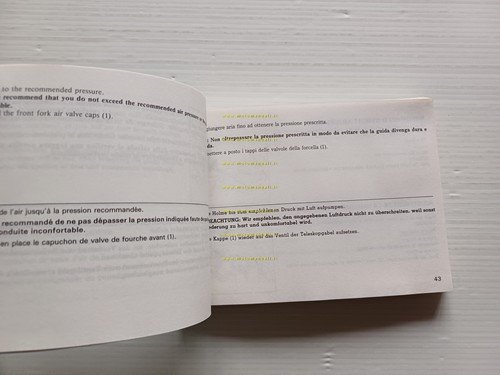 to the recommended pressure.
recommend that you do not exceed the recommended air pressure
the front fork air valve caps (1).
de l'air jusqu'à la pression recommandée.
recommandé de ne pas dépasser la pression indiquée faute de
conduite inconfortable.
en place le capuchon de valve de fourche avant (1).
aria fino ad ottenere la pressione prescritta.
Non oltrepassare la pressione prescritta in modo da evitare che la guida divenga dura e
mettere a posto i tappi delle valvole della forcella (1).
Holme bis zum empfohlenen Druck mit Luft aufpumpen.
Wir empfehlen, den angegebenen Luftdruck nicht zu überschreiten, weil sonst
zu hart und unkomfortabel wird.
Kappe (1) wieder auf das Ventil der Teleskopgabel aufsetzen.
43